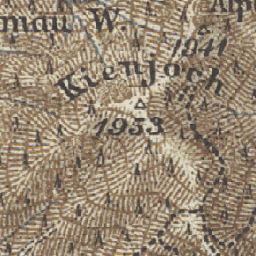 mau W.
Alp
1941
Kienjoch
1953